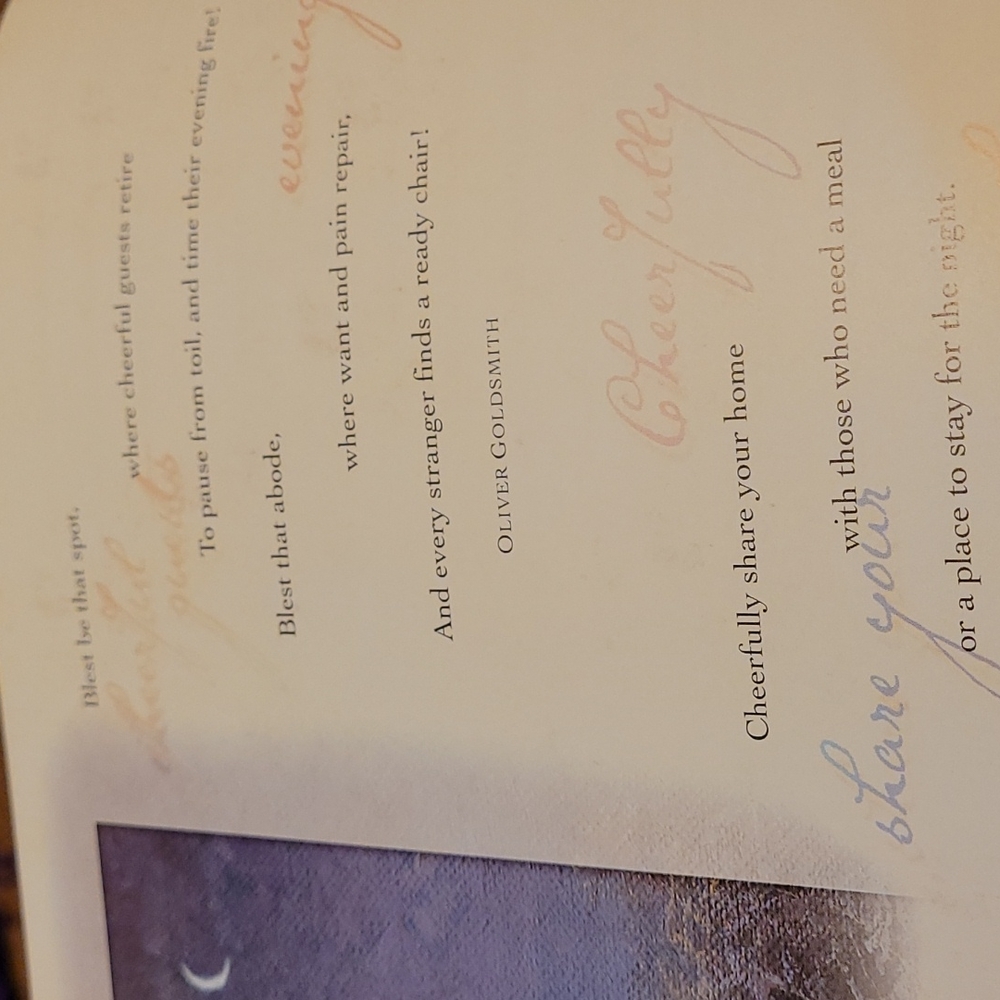 Blest be that spot,
where cheerful guests retire
cheerful
guests
To pause from toil, and time their evening fire!
Blest that abode,
evening
where want and pain repair,
And every stranger finds a ready chair!
OLIVER GOLDSMITH
Cheerfully
Cheerfully share your home
with those who need a meal
share your
or a place to stay for the night.